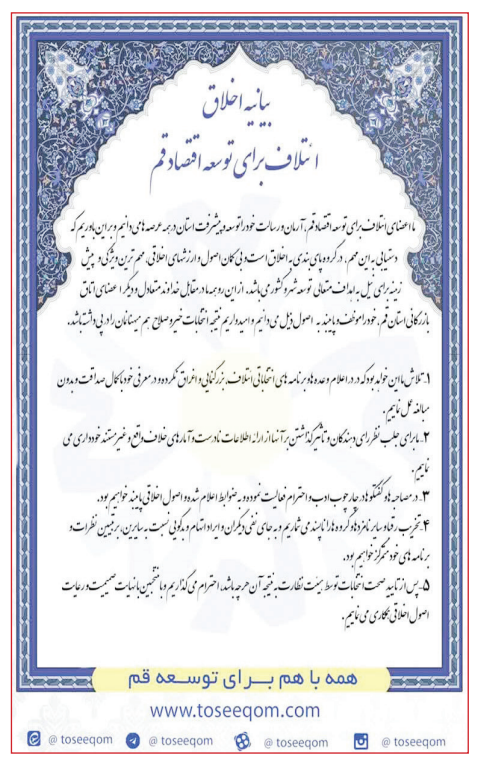 بیانیه اخلاق
ائتلاف برای توسعه اقتصاد قم
ما اعضای ائتلاف برای توسعه اقتصاد قم، آرمان و رسالت خود را توسعه و پیشرفت استان در همه عرصه ها می دانیم و بر این باوریم که
دستیابی به این مهم، در گرو پای بندی به اخلاق است و بی گمان اصول و ارزشهای اخلاقی، مهم ترین ویژگی و پیش
زمینه برای نیل به اهداف متعالی توسعه شهر و کشور می باشد. از این رو همه ما در مقابل خداوند متعادل و دیگر اعضای اتاق
بازرگانی استان قم، خود را موظف و پایبند به اصول ذیل می دانیم و امیدواریم نتیجه انتخابات خیر و صلاح هم میهنانمان را در پی داشته باشد.
۱. تلاش ما این خواهد بود که در اعلام وعده ها و برنامه های انتخاباتی ائتلاف، بزرگنمایی و اغراق نکرده و در معرفی خود با کمال صداقت و بدون
مبالغه عمل نماییم.
۲. ما برای جلب نظر رای دهندگان و تاثیر گذاشتن بر آنها از ارائه اطلاعات نادرست و آمارهای خلاف واقع و غیر مستند خودداری می
نماییم.
۳. در مصاحبه ها و گفتگوها در چارچوب ادب و احترام فعالیت نموده و به ضوابط اعلام شده و اصول اخلاقی پایبند خواهیم بود.
۴. تخریب رقبا و سایر نامزدها و گروه ها را ناپسند می شماریم و به جای نفی دیگران و ایراد اتهام و بدگویی نسبت به سایرین، بر تبیین نظرات و
برنامه های خود متمرکز خواهیم بود.
۵- پس از تایید صحت انتخابات توسط هیئت نظارت به نتیجه آن هر چه باشد، احترام می گذاریم و با منتخبین با نیات صمیمیت و رعایت
اصول اخلاقی همکاری می نماییم.
همه با هم بــرای توســعه قم
www.toseeqom.com
@ toseeqom @ toseeqom @ toseeqom @ toseeqom